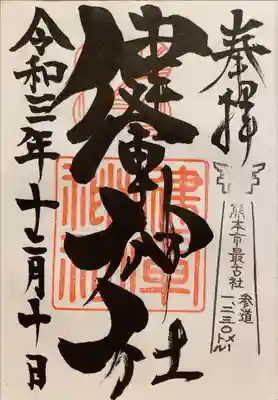 奉拝
熊本市最古社
参道
一、二三〇メートル
健軍神社
健軍
神社
令和三年十二月十日